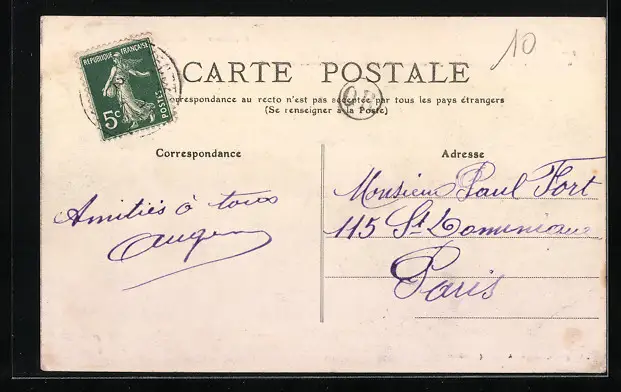 10
REPUBLIQUE FRANÇAISE
POSTES
5c
CARTE POSTALE
correspondance au recto n'est pas acceptée par tous les pays étrangers
(Se renseigner à la Poste)
Correspondance
Adresse
Amitiés à tous
Monsieur Paul Fort
115 St Dominique
Paris